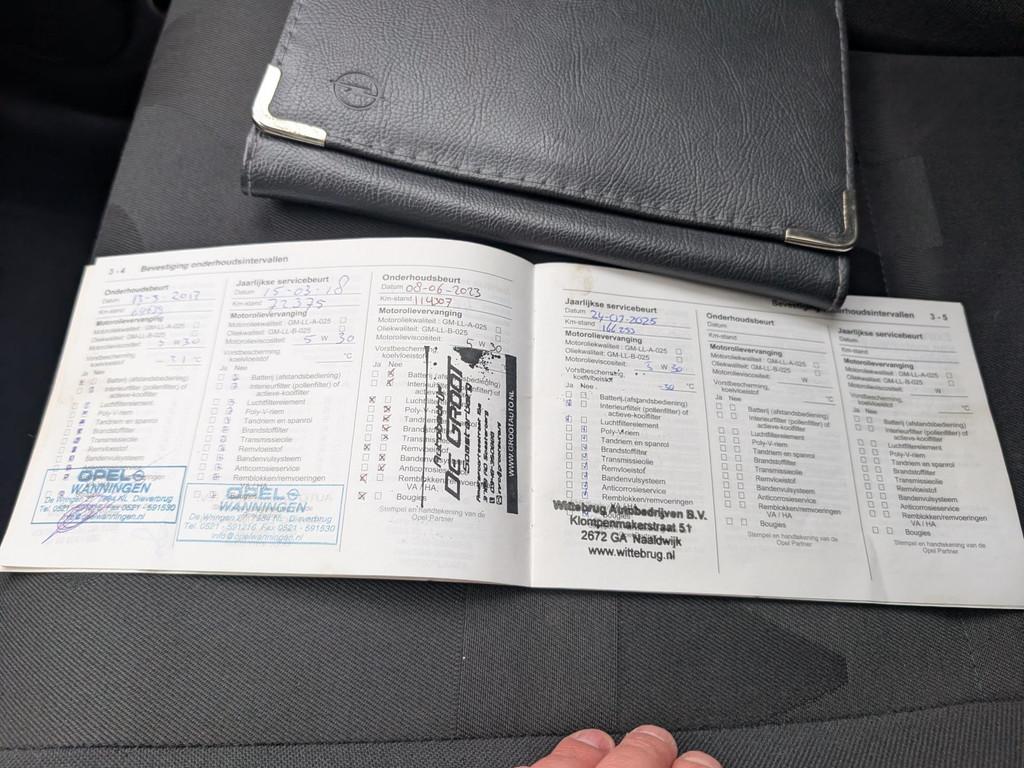 3 - 4 Bevestiging onderhoudsintervallen
Onderhoudsbeurt
Datum 13-3-2017
Km-stand
Motorolievervanging
Motoroliekwaliteit: GM-LL-A-025
Oliekwaliteit: GM-LL-B-025
Motorolieviscositeit: 5 W 30
Vorstbescherming,
koelvloeistof °C
Ja Nee
Batterij (afstandsbediening)
Interieurfilter (pollenfilter) of
actieve-koolfilter
Luchtfilterelement
Poly-V-riem
Tandriem en spanrol
Brandstoffilter
Transmissieolie
Remvloeistof
Bandenvulsysteem
OPEL
WANNINGEN
Jaarlijkse servicebeurt
Datum 15-03-18
Km-stand 72375
Motorolievervanging
Motoroliekwaliteit: GM-LL-A-025
Oliekwaliteit: GM-LL-B-025
Motorolieviscositeit: 5 W 30
Vorstbescherming,
koelvloeistof °C
Ja Nee
Batterij (afstandsbediening)
Interieurfilter (pollenfilter) of
actieve-koolfilter
Luchtfilterelement
Poly-V-riem
Tandriem en spanrol
Brandstoffilter
Transmissieolie
Remvloeistof
Bandenvulsysteem
Anticorrosieservice
Remblokken/remvoeringen
OPEL
WANNINGEN
De Wringen 27 7981 NL Dieverbrug
Tel. 0521 - 591216 Fax 0521 - 591530
info@opelwanningen.nl
Onderhoudsbeurt
Datum 08-06-2023
Km-stand 114307
Motorolievervanging
Motoroliekwaliteit: GM-LL-A-025
Oliekwaliteit: GM-LL-B-025
Motorolieviscositeit: 5 W 30
Vorstbescherming,
koelvloeistof
Ja Nee
Luchtfilterelement
Poly-V-riem
Tandriem
Brandstoffilter
Remvloeistof
Anticorrosieservice
Remblokken/remvoeringen
VA / HA
Bougies
Stempel en handtekening van de
Opel Partner
Autobedrijf
DE GROOT
WWW.GROOTAUTO.NL
Bevestiging onderhoudsintervallen 3 - 5
Jaarlijkse servicebeurt
Datum 24-07-2025
Km-stand
Motorolievervanging
Motoroliekwaliteit: GM-LL-A-025
Oliekwaliteit: GM-LL-B-025
Motorolieviscositeit: 5 W 30
Vorstbescherming,
koelvloeistof -30 °C
Ja Nee
Batterij (afstandsbediening)
Interieurfilter (pollenfilter) of
actieve-koolfilter
Luchtfilterelement
Poly-V-riem
Tandriem en spanrol
Brandstoffilter
Transmissieolie
Remvloeistof
Bandenvulsysteem
Anticorrosieservice
Remblokken/remvoeringen
Wittebrug Autobedrijven B.V.
Klompenmakerstraat 51
2672 GA Naaldwijk
www.wittebrug.nl
Onderhoudsbeurt
Datum
Km-stand
Motorolievervanging
Motoroliekwaliteit: GM-LL-A-025
Oliekwaliteit: GM-LL-B-025
Motorolieviscositeit: W
Vorstbescherming,
koelvloeistof °C
Ja Nee
Batterij (afstandsbediening)
Interieurfilter (pollenfilter) of
actieve-koolfilter
Luchtfilterelement
Poly-V-riem
Tandriem en spanrol
Brandstoffilter
Transmissieolie
Remvloeistof
Bandenvulsysteem
Anticorrosieservice
Remblokken/remvoeringen
VA / HA
Bougies
Stempel en handtekening van de
Opel Partner
Jaarlijkse servicebeurt
Datum
Km-stand
Motorolievervanging
Motoroliekwaliteit: GM-LL-A-025
Oliekwaliteit: GM-LL-B-025
Motorolieviscositeit: W
Vorstbescherming,
koelvloeistof °C
Ja Nee
Batterij (afstandsbediening)
Interieurfilter (pollenfilter) of
actieve-koolfilter
Luchtfilterelement
Poly-V-riem
Tandriem en spanrol
Brandstoffilter
Transmissieolie
Remvloeistof
Bandenvulsysteem
Anticorrosieservice
Remblokken/remvoeringen
VA / HA
Bougies
Stempel en handtekening van de
Opel Partner